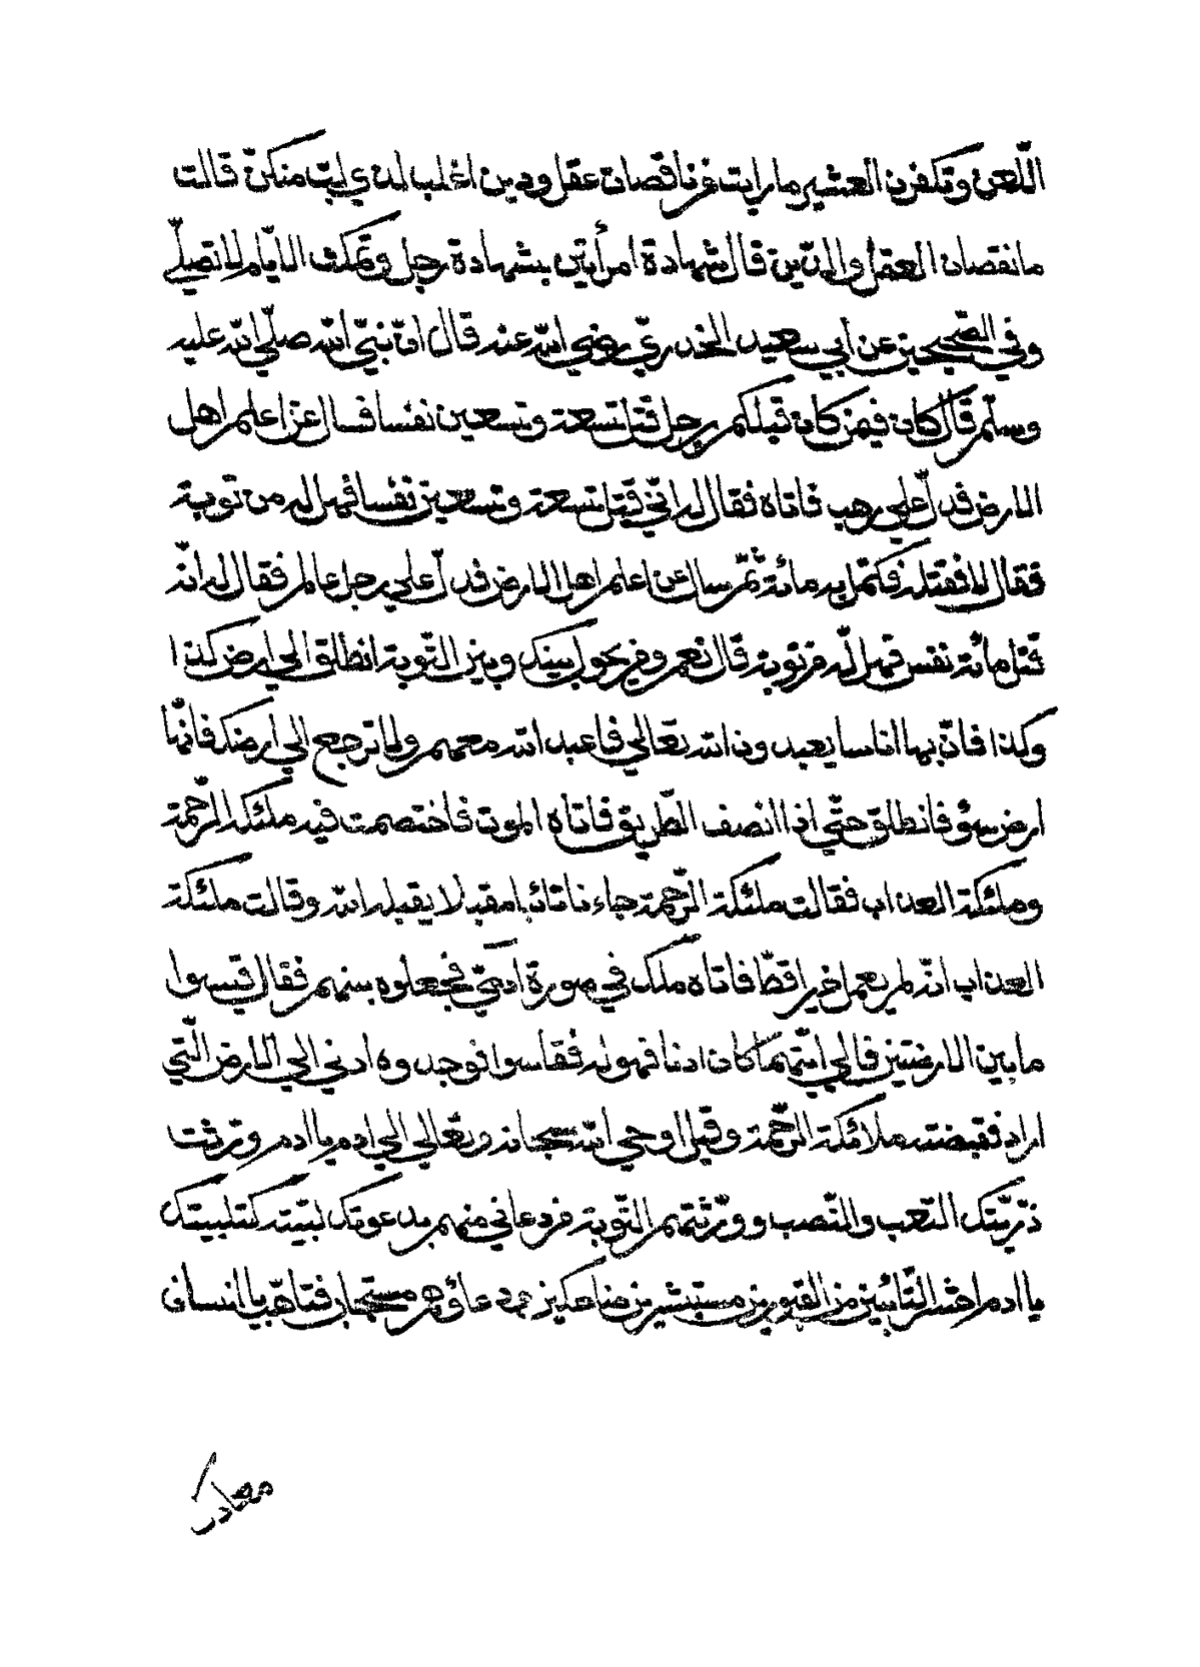 اللّعن وتكفرن العشير ما رايت من ناقصات عقل ودين اغلب لذي لبّ منكنّ قالت
ما نقصان العقل والدّين قال شهادة امرأتين بشهادة رجل وتمكث الايّام لا تصلّي
وفي الصّحيحين عن أبي سعيد الخدريّ رضي الله عنه قال انّ نبيّ الله صلّي الله عليه
وسلّم قال كان فيمن كان قبلكم رجل قتل تسعة وتسعين نفسا فسال عن اعلم اهل
الارض فدلّ علي رهب فاتاه فقال له انّي قتل تسعة وتسعين نفسا فهل له من توبة
فقال لا فقتله فكمّل به مائة ثمّ سال عن اعلم اهل الارض فدلّ علي رجل عالم فقال له انّه
قتل مائة نفس فهل له من توبة قال نعم ومن يحول بينك وبين التّوبة انطلق الي ارض كذا
وكذا فانّ بها اناسا يعبدون الله تعالي فاعبد الله معهم ولا ترجع الي ارضك فانّها
ارض سؤ فانطلق حتّي اذا انصف الطّريق فاتاه الموت فاختصمت فيه ملئكة الرّحمة
وملئكة العذاب فقالت ملئكة الرّحمة جاءنا تائبا مقبلا يقبله الله وقالت ملئكة
العذاب انّه لم يعمل خيرا قطّ فاتاه ملك في صورة آدميّ فجعلوه بينهم فقال قيسوا
ما بين الارضتين فالي ايّتهما كان ادنا فهو له فقاسوا فوجدوه ادني الي الارض الّتي
اراد فقبضته ملائكة الرّحمة وقيل اوحي الله سبحانه وتعالي الي ادم يا ادم ورّثت
ذرّيّتك التّعب والنّصب وورّثتهم التّوبة فمن دعاني منهم بدعوتك لبّيته كتلبيتك
يا ادم احشر التّائبين من القبور مستبشرين ضاحكين ودعاؤهم مستجاب فتاهّب يا انسان